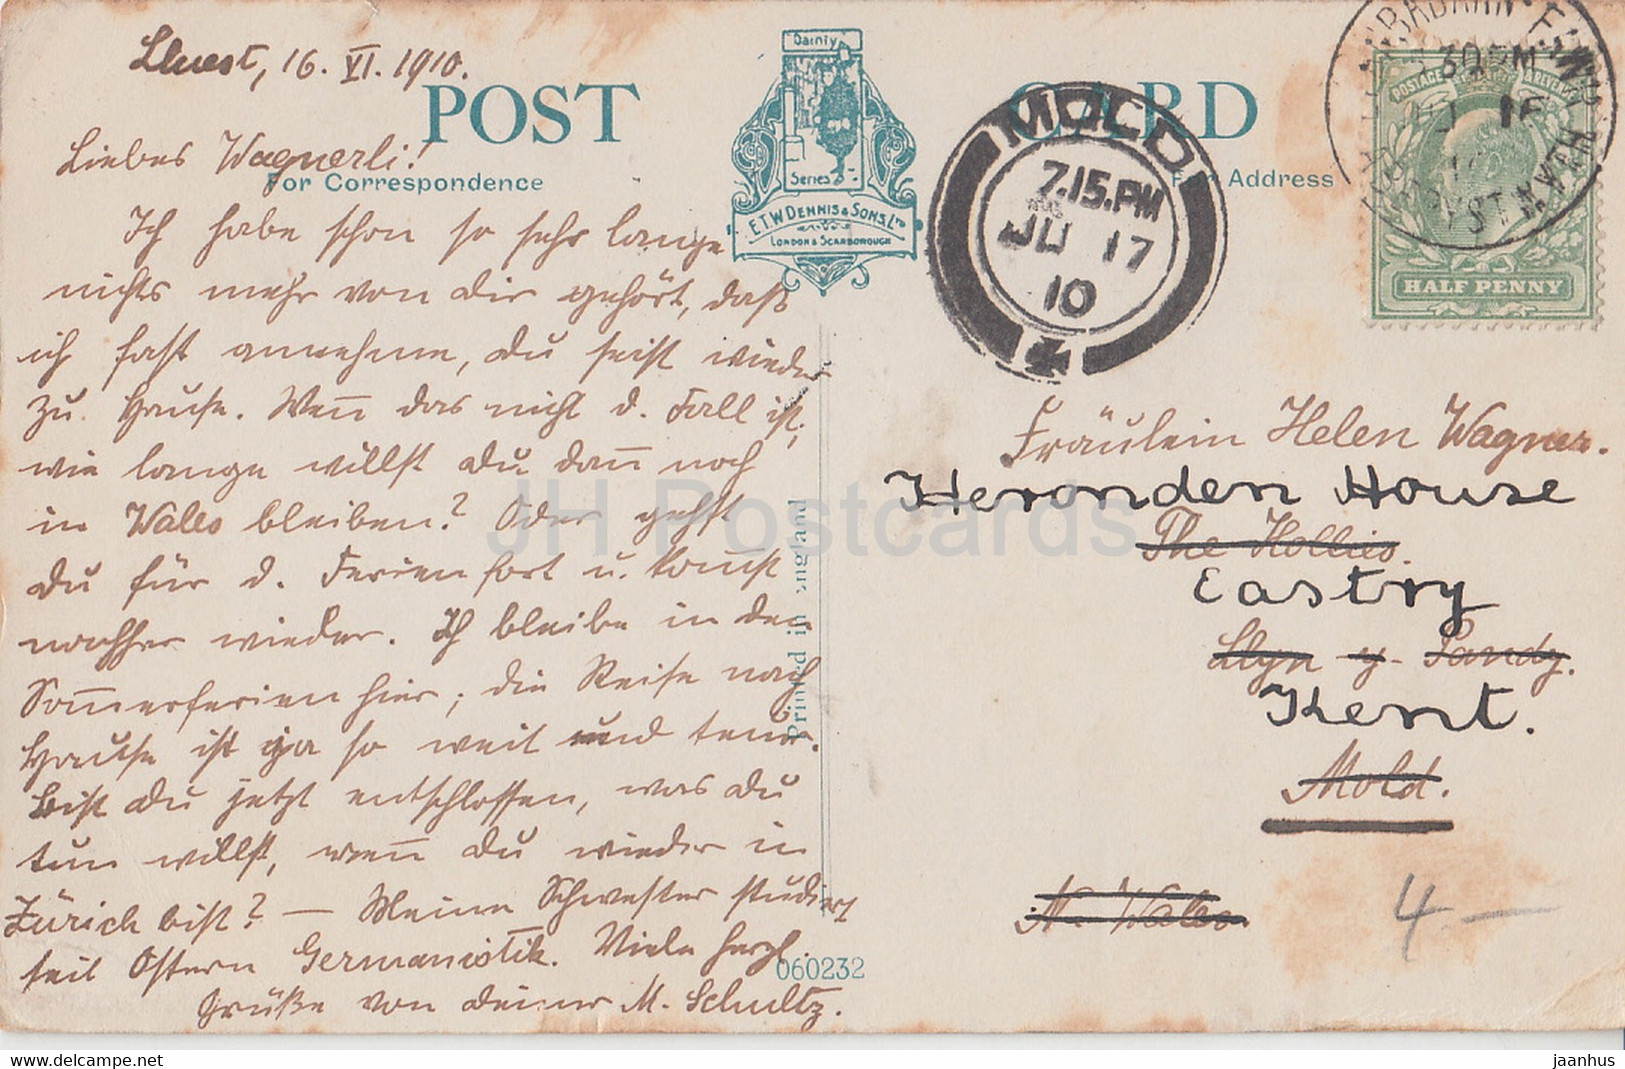 Lluest, 16. VI. 1910.
POST CARD
Dainty
Series
E.T.W. DENNIS & SONS, LTD
LONDON & SCARBOROUGH
For Correspondence
Address
Liebes Wagnerli!
Ich habe schon so sehr lange
nichts mehr von dir gehört, daß
ich fast annehme, du seist wieder
zu Hause. Wenn das nicht d. Fall ist,
wie lange willst du dann noch
in Wales bleiben? Oder gehst
du für d. Ferien fort u. kommst
nachher wieder. Ich bleibe in den
Sommerferien hier; die Reise nach
Hause ist ja so weit und teuer.
Bist du jetzt entschlossen, was du
tun willst, wenn du wieder in
Zürich bist? — Meine Schwester studiert
seit Ostern Germanistik. Viele herzl.
Grüße von deiner M. Schultz.
Printed in England
060232
MOLD
7.15.PM
JU 17
10
30 PM
POSTAGE REVENUE
HALF PENNY
Fräulein Helen Wagner.
Heronden House
The Hollies.
Eastry
Llyn y Pandy.
Kent.
Mold.
N. Wales
4 —
JH Postcards
www.delcampe.net
jaanhus